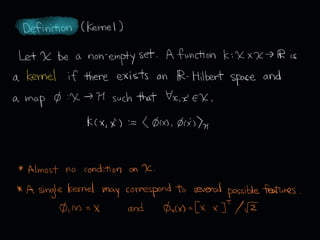 Definition (Kernel)
Let X be a non-empty set. A function k: X × X → ℝ is
a kernel if there exists an ℝ-Hilbert space and
a map ϕ: X → H such that ∀x, x' ∈ X,
k(x, x') := ⟨ϕ(x), ϕ(x')⟩_H
* Almost no condition on X.
* A single kernel may correspond to several possible features.
ϕ₁(x) = x and ϕ₂(x) = [x x]ᵀ / √2